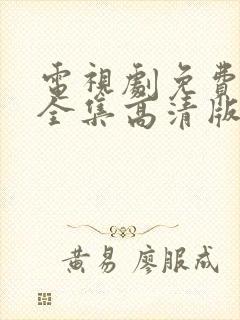 電視劇免費
全集高清版
黃易 廖服成